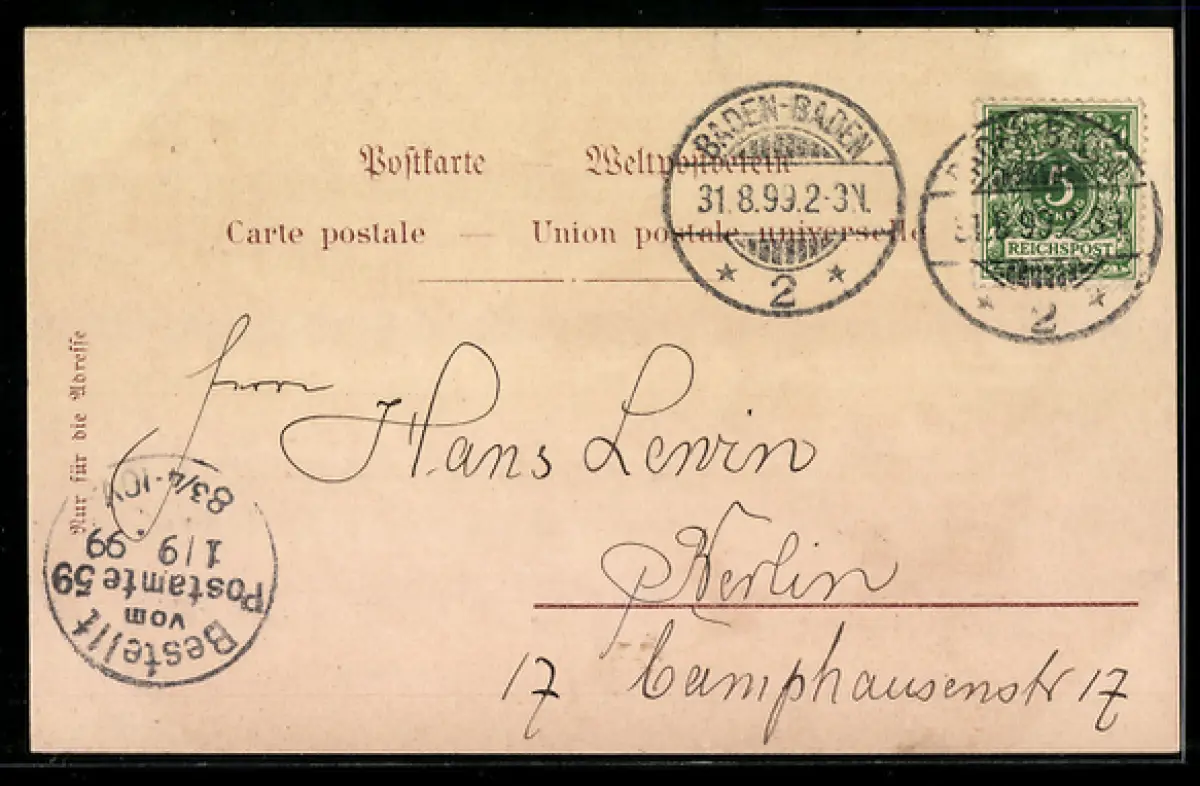 Postkarte — Weltpostverein
Carte postale — Union postale universelle
BADEN-BADEN
31.8.99.2-3N.
* 2 *
BADEN-BADEN
31.8.99.2-3N.
* 2 *
5
REICHSPOST
Nur für die Adresse
Herrn
Hans Lewin
Berlin
17 Camphausenstr 17
Bestellt
vom
Postamte 59
1/9 99